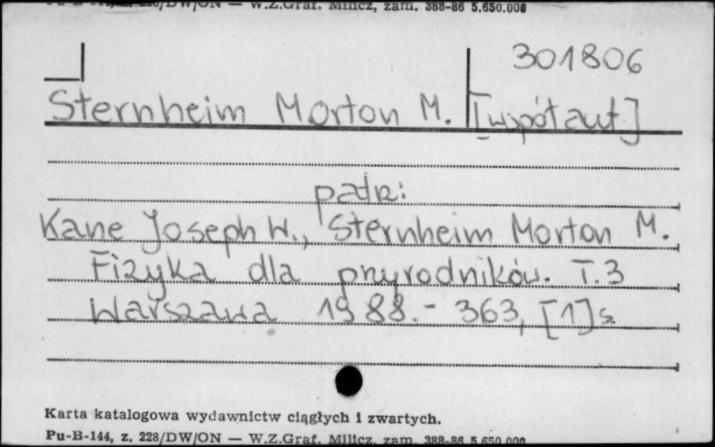 Pu-B-144, z. 228/DW/ON — W.Z.Graf. Milicz, zam. 388-86 5.650.000
301806
Sternheim Morton M. [współaut]
patrz:
Kane Joseph W., Sternheim Morton M.
Fizyka dla przyrodników. T.3
Warszawa 1988.- 363, [1] s.
Karta katalogowa wydawnictw ciągłych i zwartych.
Pu-B-144, z. 228/DW/ON — W.Z.Graf. Milicz, zam. 388-86 5.650.000